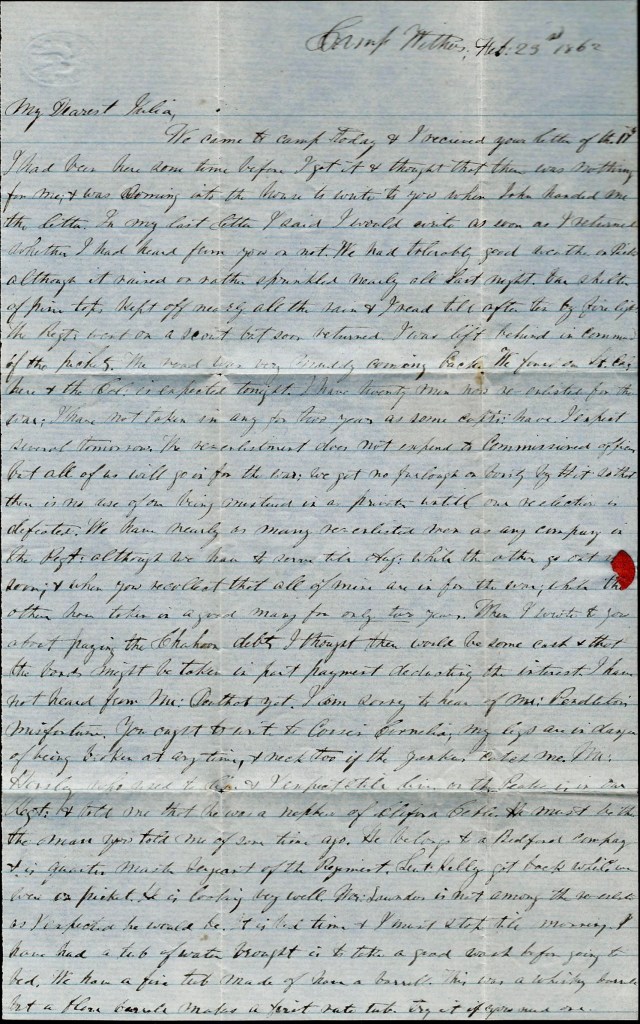 Camp Withers, Feb. 23rd 1862
My Dearest Julia,
We came to camp today & I recieved your letter of the 17th
I had been here some time before I got it & thought that there was nothing
for me; & was coming into the house to write to you when John handed me
the letter. In my last letter I said I would write as soon as I returned
whether I had heard from you or not. We had tolerably good weather on
although it rained or rather sprinkled nearly all last night. Our shelter
of pine tops kept off nearly all the rain & I read till after ten by fire light
The Regt: went on a scout but soon returned. I was left behind in comman
of the pickets. The road was very muddy coming back. We found
here & the Col: is expected tonight. I have twenty men now re-enlisted for the
war; I have not taken in any for two years as some capts: have. I expect
several tomorrow. The re-enlistment does not extend to Commissioned officers
but all of us will go in for the war; we get no furlough or bounty by it so that
there is no use of our being mustered in as privates untill our reelection is
defeated. We have nearly as many re-enlisted men as any company in
the Regt: although we have to serve till Aug: while the others go out
soon; & when you recollect that all of mine are in for the war, while the
others have taken in a good many for only two years. When I wrote to you
about paying the debt, I thought there would be some cash & that
the bonds might be taken in part payment deducting the interest. I have
not heard from Mr. yet. I am sorry to hear of Mr: Pendleton
misfortune. You ought to write to Cornelia, my legs are in danger
of being broken at any time, & neck too if the yankees catch me. Mr:
who used to & I expect still live on the is in our
Regt: & told me that he was a nephew of He must be the
the man you told me of some time ago. He belongs to a Bedford company
& is quarter master sergeant of the Regiment. Lieut Kelly got back while we
were on picket. He is looking very well. Wm: Saunders is not among the re-enlisted
as I expected he would be. It is bed time & I must stop till morning. I
have had a tub of water brought in to take a good wash before going to
bed. We have a fine tub made of from a barrell. This was a whisky barrell
but a flour barrell makes a first rate tub. Try it if you need one.